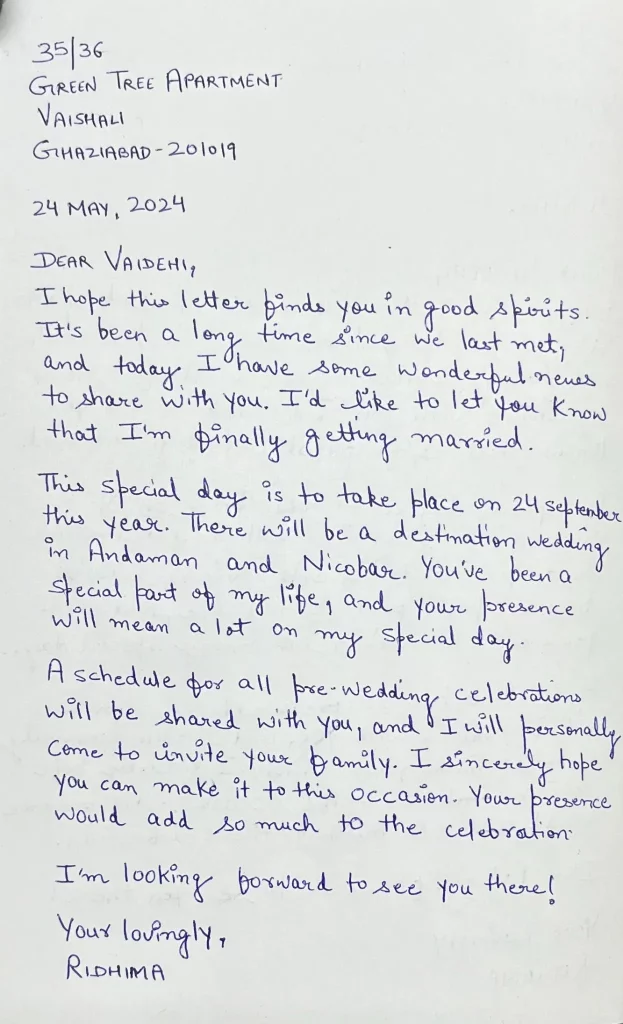 35/36
GREEN TREE APARTMENT
VAISHALI
GHAZIABAD-201019
24 MAY, 2024
DEAR VAIDEHI,
I hope this letter finds you in good spirits.
It's been a long time since we last met,
and today, I have some wonderful news
to share with you. I'd like to let you know
that I'm finally getting married.
This special day is to take place on 24 september
this year. There will be a destination wedding
in Andaman and Nicobar. You've been a
special part of my life, and your presence
will mean a lot on my special day.
A schedule for all pre-wedding celebrations
will be shared with you, and I will personally
come to invite your family. I sincerely hope
you can make it to this occasion. Your presence
would add so much to the celebration.
I'm looking forward to see you there!
Your lovingly,
RIDHIMA